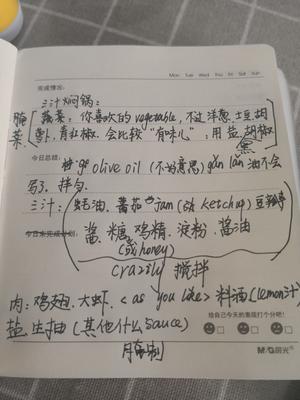 Mon Tue Wed Thu Fri Sat Sun
完成情况:
三汁焖锅:
腌菜
蔬菜: 你喜欢的 vegetable, 不过洋葱、土豆、胡
萝卜、青红椒、会比较 "有味儿"; 用盐、胡椒
黑
今日总结:
olive oil (不好意思) gǎn lǎn 油不会
写了、拌匀.
三汁: 蚝油、番茄 jam (or ketchup) 豆瓣
今日未完成计划:
酱、糖、鸡精、淀粉、酱油
(or honey)
crazily 搅拌
肉: 鸡翅、大虾、<as you like> 料酒 (lemon汁)
盐、生抽 (其他什么 sauce)
给自己今天的表现打个分吧!
腌制
M&G晨光